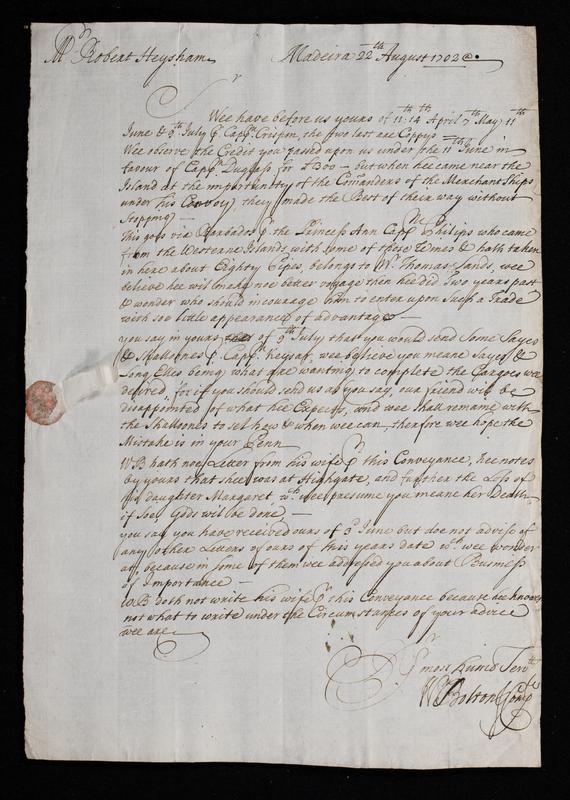 Mr Robert Heysham Madeira 22th August 1702
Sr
Wee have before us yours of 11th 14th April 7th May 11th
June & 9th July p Capt Crispin, the two last are Coppys
Wee observe the Credit you passed upon us under the 11th June in
favour of Capt Duglass for £300 – but when hee came near the
Island at the importunity of the Comanders of the Merchant Ships
under his Convoy, they made the Best of their way without
stopping –
This goes via Barbados p the Princess Ann Capt Philips who came
from the Westerne Islands with some of those Wines & hath taken
in here about Eighty Pipes, belongs to Mr Thomas Sands, wee
believe hee wil make noe better voyage then hee did Two years past
& wonder who should incourage him to enter upon Such a Trade
with soe little appearance of advantage –
you say in yours of 9th July that you would send Some Sayes
& Shalloones p Capt Keysar, wee believe you meane Sayes &
Long Ells being what are wanting to complete the Cargoes wee
desired, for if you should send us as you say, our friend wil be
disappointed of what hee Expects, and wee shall remaine with
the Shalloones to sel how & when wee can, therfore wee hope the
Mistake is in your Penn
WB hath noe Letter from his wife p this Conveyance, hee notes
by yours that shee was at Highgate, and further the Loss of
his daughter Margaret, wch wee presume you meane her Death
if Soe, Gods wil be done –
you say you have received ours of 3d June but doe not advise of
any other Letters of ours of this years date wch wee wonder
at, because in some of them wee addressed you about Business
of Importance –
WB doth not write his wife p this Conveyance because hee knowes
not what to write under the Circumstances of your advice
wee are
Sr
Yr most humb Servts
Wm Bolton & Comp